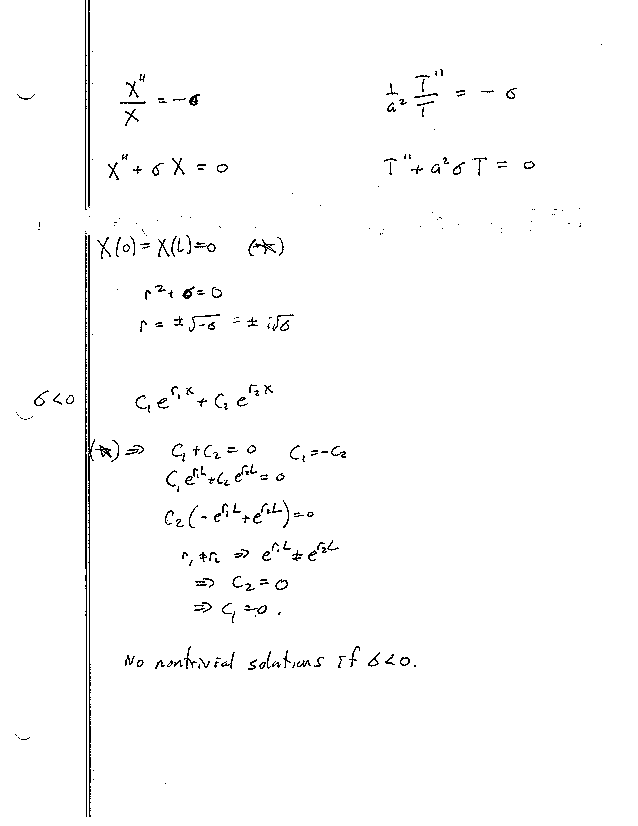 X''/X = -σ    1/a² T''/T = -σ
X'' + σX = 0    T'' + a²σT = 0
X(0) = X(L) = 0   (*)
r² + σ = 0
r = ±√-σ = ± i√σ
σ<0   C₁e^{r₁x} + C₂e^{r₂x}
(*) ⇒ C₁ + C₂ = 0   C₁ = -C₂
C₁e^{r₁L} + C₂e^{r₂L} = 0
C₂(-e^{r₁L} + e^{r₂L}) = 0
r₁ ≠ r₂ ⇒ e^{r₁L} ≠ e^{r₂L}
⇒ C₂ = 0
⇒ C₁ = 0.
No nontrivial solutions if σ<0.